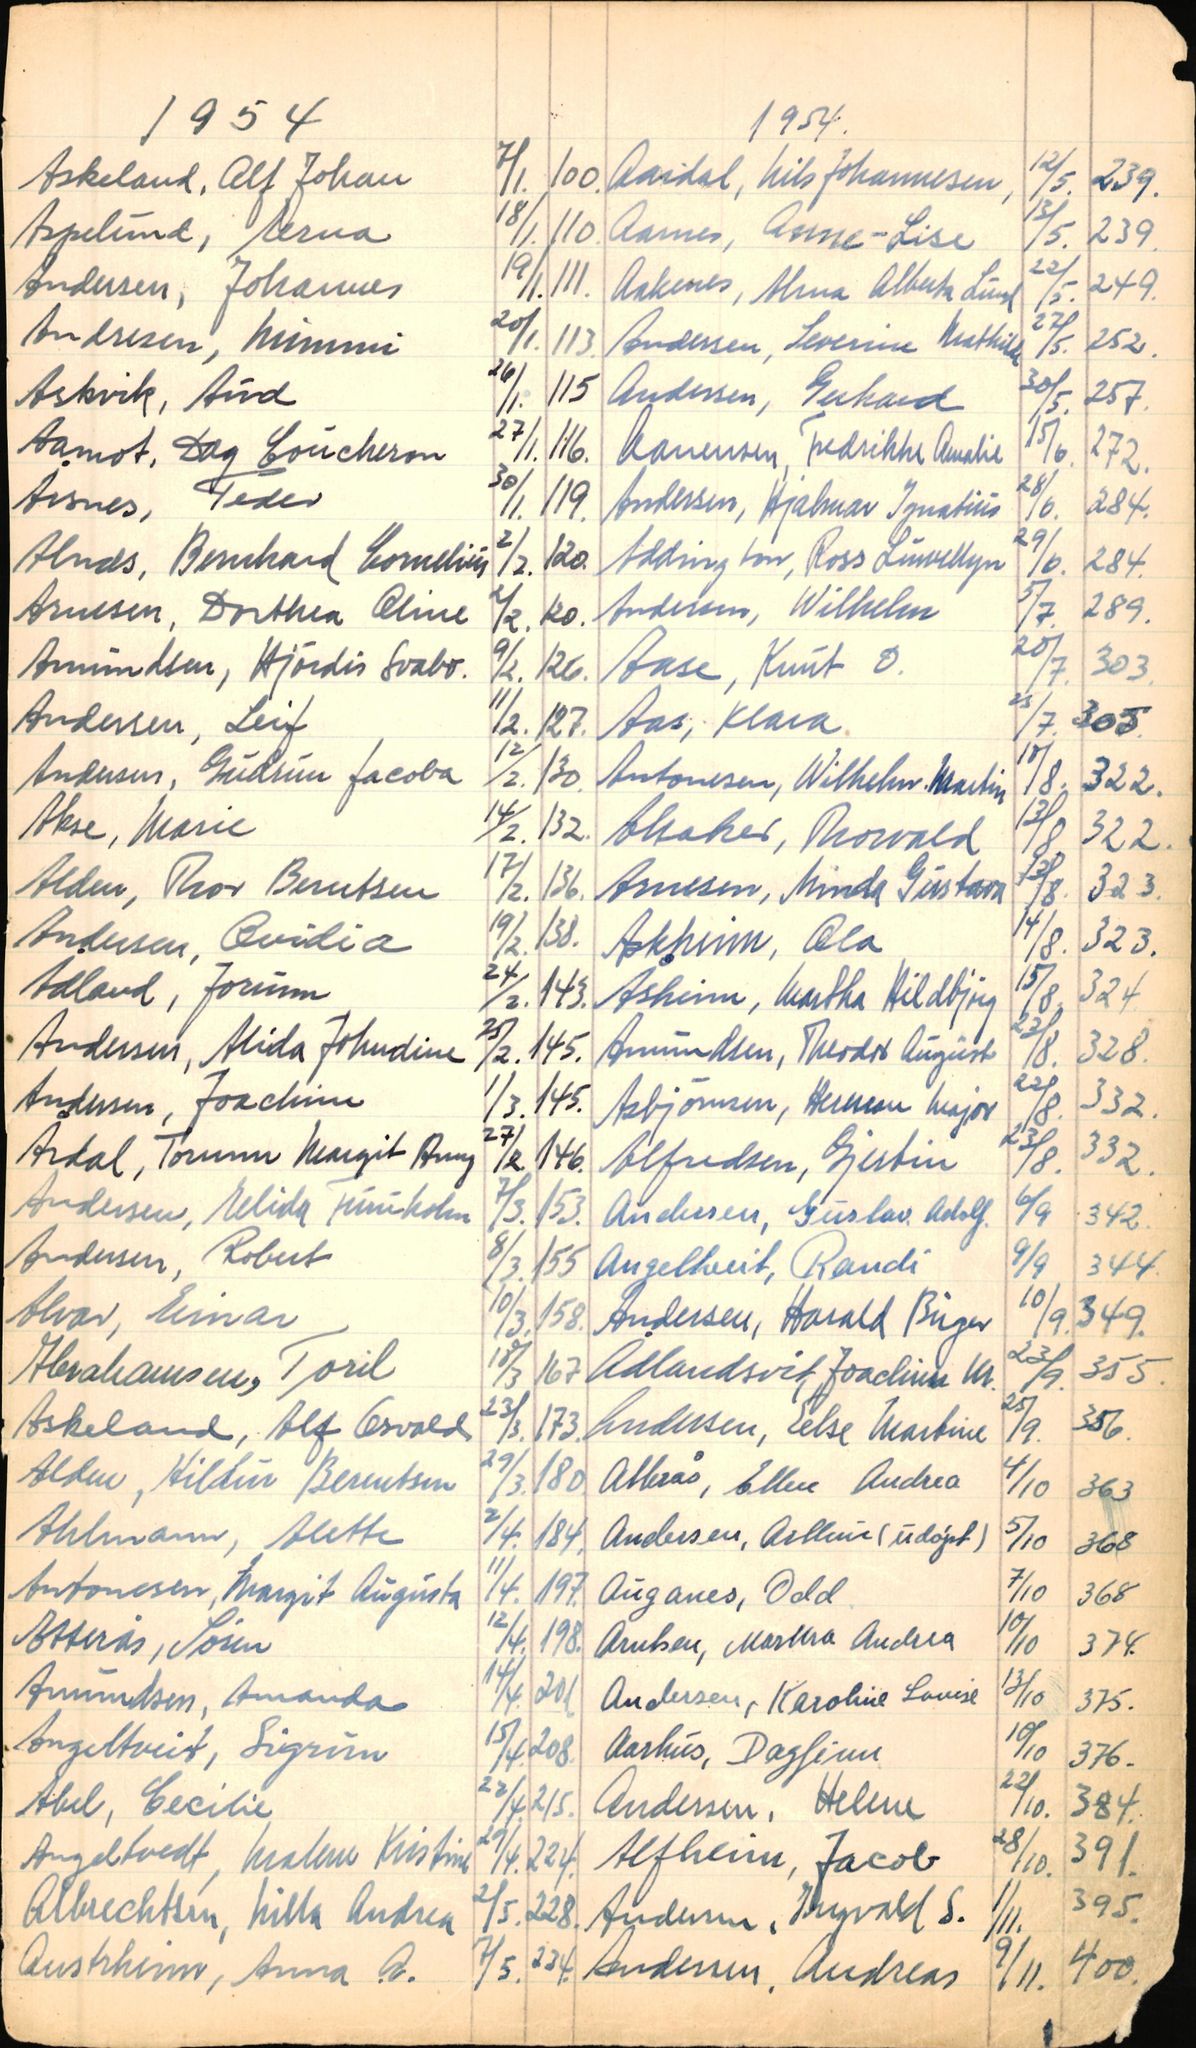 1954
Askeland, Alf Johan 7/1. 100.
Aspelund, Verna 18/1. 110.
Andersen, Johannes 19/1. 111.
Andresen, Mimmi 20/1. 113.
Askvik, Aud 26/1. 115
Aamot, Dag Coucheron 27/1. 116.
Årsnes, Peder 30/1. 119.
Alnæs, Bernhard Cornelius 2/2. 120.
Arnesen, Dorthea Oline 2/2. 120.
Amundsen, Hjördis Svabo. 9/2. 126.
Andersen, Leif 11/2. 127.
Andersen, Gudrun Jacoba 12/2. 130.
Akse, Marie 14/2. 132.
Alden, Thor Berntsen 17/2. 136.
Andersen, Ovidia 19/2. 138.
Ådland, Jorunn 24/2. 143.
Andersen, Alida Johndine 25/2. 145.
Andersen, Joachim 1/3. 145.
Årdal, Torunn Margit Anny 27/2. 146.
Andersen, Elida 7/3. 153.
Andersen, Robert 8/3. 155
Alvar, Einar 10/3. 158.
Abrahamsen, Toril 18/3 167
Askeland, Alf Osvald 23/3. 173.
Alden, Hildur Berentsen 29/3. 180
Ahlmann, Alette 2/4. 184.
Antonesen, Margit Augusta 11/4. 197.
Atterås, Søren 12/4. 198.
Amundsen, Amanda 14/4. 201
Angeltveit, Sigrun 15/4. 208.
Abel, Cecilie 22/4. 215.
Angeltvedt, Malene Kristine 29/4. 224.
Albrechtsen, Milla Andrea 2/5. 228.
Austrheim, Anna A. 7/5. 234.
1954.
Aardal, Nils Johannesen, 12/5. 239.
Aarnes, Anne-Lise 13/5. 239.
Aakenes, Alma Alberta Lund 22/5. 249.
Andersen, Severine Mathilde 27/5. 252.
Andersen, Gerhard 30/5. 257.
Aanensen, Fredrikke Amalie 15/6. 272.
Andersen, Hjalmar Ignatius 28/6. 284.
Addington, Ross Luwellyn 29/6. 284.
Andersen, Wilhelm 5/7. 289.
Aase, Knut O. 20/7. 303.
Aas, Klara 25/7. 305.
Antonesen, Wilhelm Martin 10/8. 322.
Alsaker, Thorvald 13/8 322.
Arnesen, Minda Gustava 13/8. 323.
Askheim, Ola 14/8. 323.
Åsheim, Martha Hildbjörg 15/8. 324
Amundsen, Theodor August 22/8. 328.
Asbjörnsen, Herman Major 22/8. 332.
Alfredsen, Gjertin 23/8. 332.
Andersen, Gustav Adolf. 6/9 342.
Angeltveit, Randi 9/9 344.
Andersen, Harald Birger 10/9. 349.
Ådlandsvik, Joachim M. 23/9. 355.
Andersen, Else Martine 25/9. 356.
Atterås, Ellen Andrea 4/10 363
Andersen, Arthur (udöpt) 5/10 368
Auganes, Odd 7/10 368
Arntsen, Martha Andrea 10/10 374.
Andersen, Karoline Lovise 13/10 375.
Aarhus, Dagfinn 10/10 376.
Andersen, Helene 22/10. 384.
Alfheim, Jacob 28/10. 391.
Andersen, Ingvald S. 1/11. 395.
Andersen, Andreas 9/11. 400.